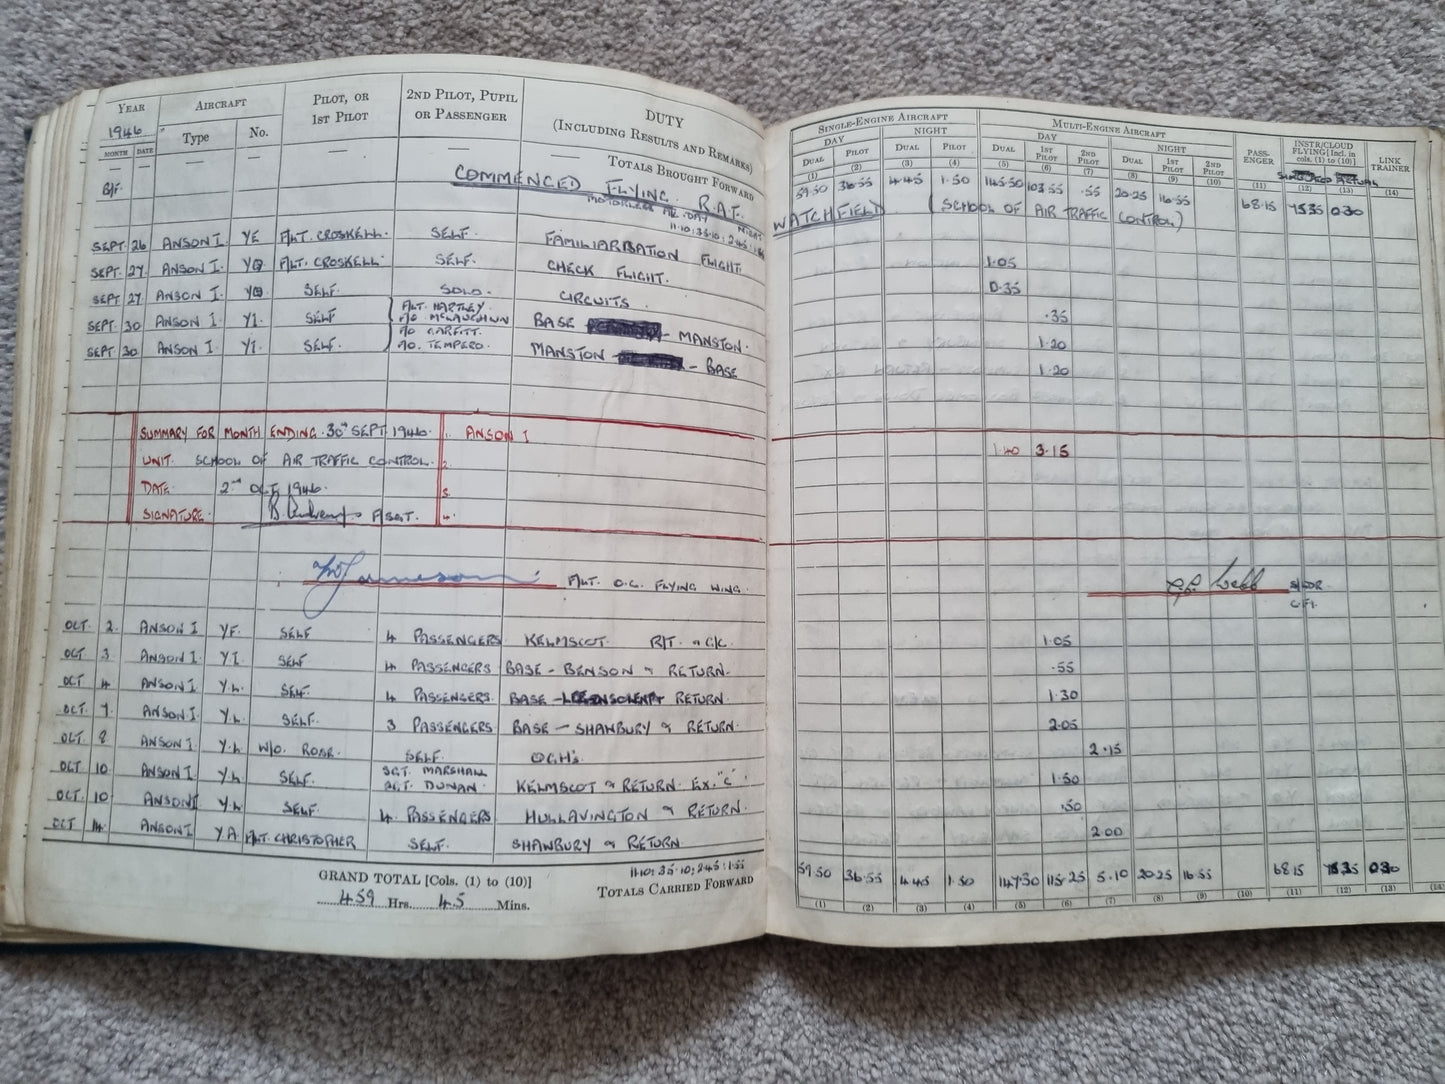 YEAR AIRCRAFT PILOT, OR 1ST PILOT 2ND PILOT, PUPIL OR PASSENGER DUTY (INCLUDING RESULTS AND REMARKS)
1946 Type No.
MONTH DATE
— — — — — — TOTALS BROUGHT FORWARD
B/F. COMMENCED FLYING. R.A.F.
SEPT. 26 ANSON I. YE F/LT. CROSKELL. SELF. FAMILIARISATION FLIGHT.
SEPT. 27 ANSON I. F/LT. CROSKELL. SELF. CHECK FLIGHT.
SEPT 27 ANSON I. SELF. SOLO. CIRCUITS.
SEPT. 30 ANSON I. YI. SELF F/LT. HARTLEY. BASE — MANSTON.
SEPT. 30 ANSON I. YI. SELF. F/O. TEMPERO. MANSTON — BASE
SUMMARY FOR MONTH ENDING. 30TH SEPT 1946. 1. ANSON I
UNIT. SCHOOL OF AIR TRAFFIC CONTROL. 2.
DATE. 2ND OCT. 1946. 3.
SIGNATURE. F/SGT. 4.
F/LT. O.C. FLYING WING.
OCT. 2. ANSON I YF. SELF 4 PASSENGERS KELMSCOT. R/T.
OCT. 3 ANSON I. YI. SELF 4 PASSENGERS BASE — BENSON & RETURN.
OCT 4 ANSON I. Y.L. SELF. 4 PASSENGERS. BASE — RETURN.
OCT. 7. ANSON I. Y.L. SELF. 3 PASSENGERS BASE — SHAWBURY & RETURN.
OCT. 8 ANSON I Y.L W/O. ROSE. SELF. QGH's
OCT 10 ANSON I. Y.L. SELF. SGT. MARSHALL KELMSCOT & RETURN. EX. "C".
SGT. DUNAN.
OCT. 10 ANSON I Y.L. SELF. 4. PASSENGERS HULLAVINGTON & RETURN.
OCT 14. ANSON I Y.A. F/LT. CHRISTOPHER SELF. SHAWBURY & RETURN.
11.10: 35.10: 2.45: 1.55
GRAND TOTAL [Cols. (1) to (10)] TOTALS CARRIED FORWARD
459 Hrs. 45 Mins.
SINGLE-ENGINE AIRCRAFT MULTI-ENGINE AIRCRAFT PASS-ENGER INSTR/CLOUD FLYING [Incl. in cols. (1) to (10)] LINK TRAINER
DAY NIGHT DAY NIGHT
DUAL PILOT DUAL PILOT DUAL 1ST PILOT 2ND PILOT DUAL 1ST PILOT 2ND PILOT
(1) (2) (3) (4) (5) (6) (7) (8) (9) (10) (11) (12) (13) (14)
59.50 36.55 4.45 1.50 145.50 103.55 .55 20.25 16.55 68.15 15.35 0.30
WATCHFIELD (SCHOOL OF AIR TRAFFIC CONTROL)
1.05
0.35
.35
1.20
1.20
1.40 3.15
S/LDR.
C.F.I.
1.05
.55
1.30
2.05
2.15
1.50
.50
2.00
59.50 36.55 4.45 1.50 147.30 115.25 5.10 20.25 16.55 68.15 15.35 0.30
(1) (2) (3) (4) (5) (6) (7) (8) (9) (10) (11) (12) (13) (14)